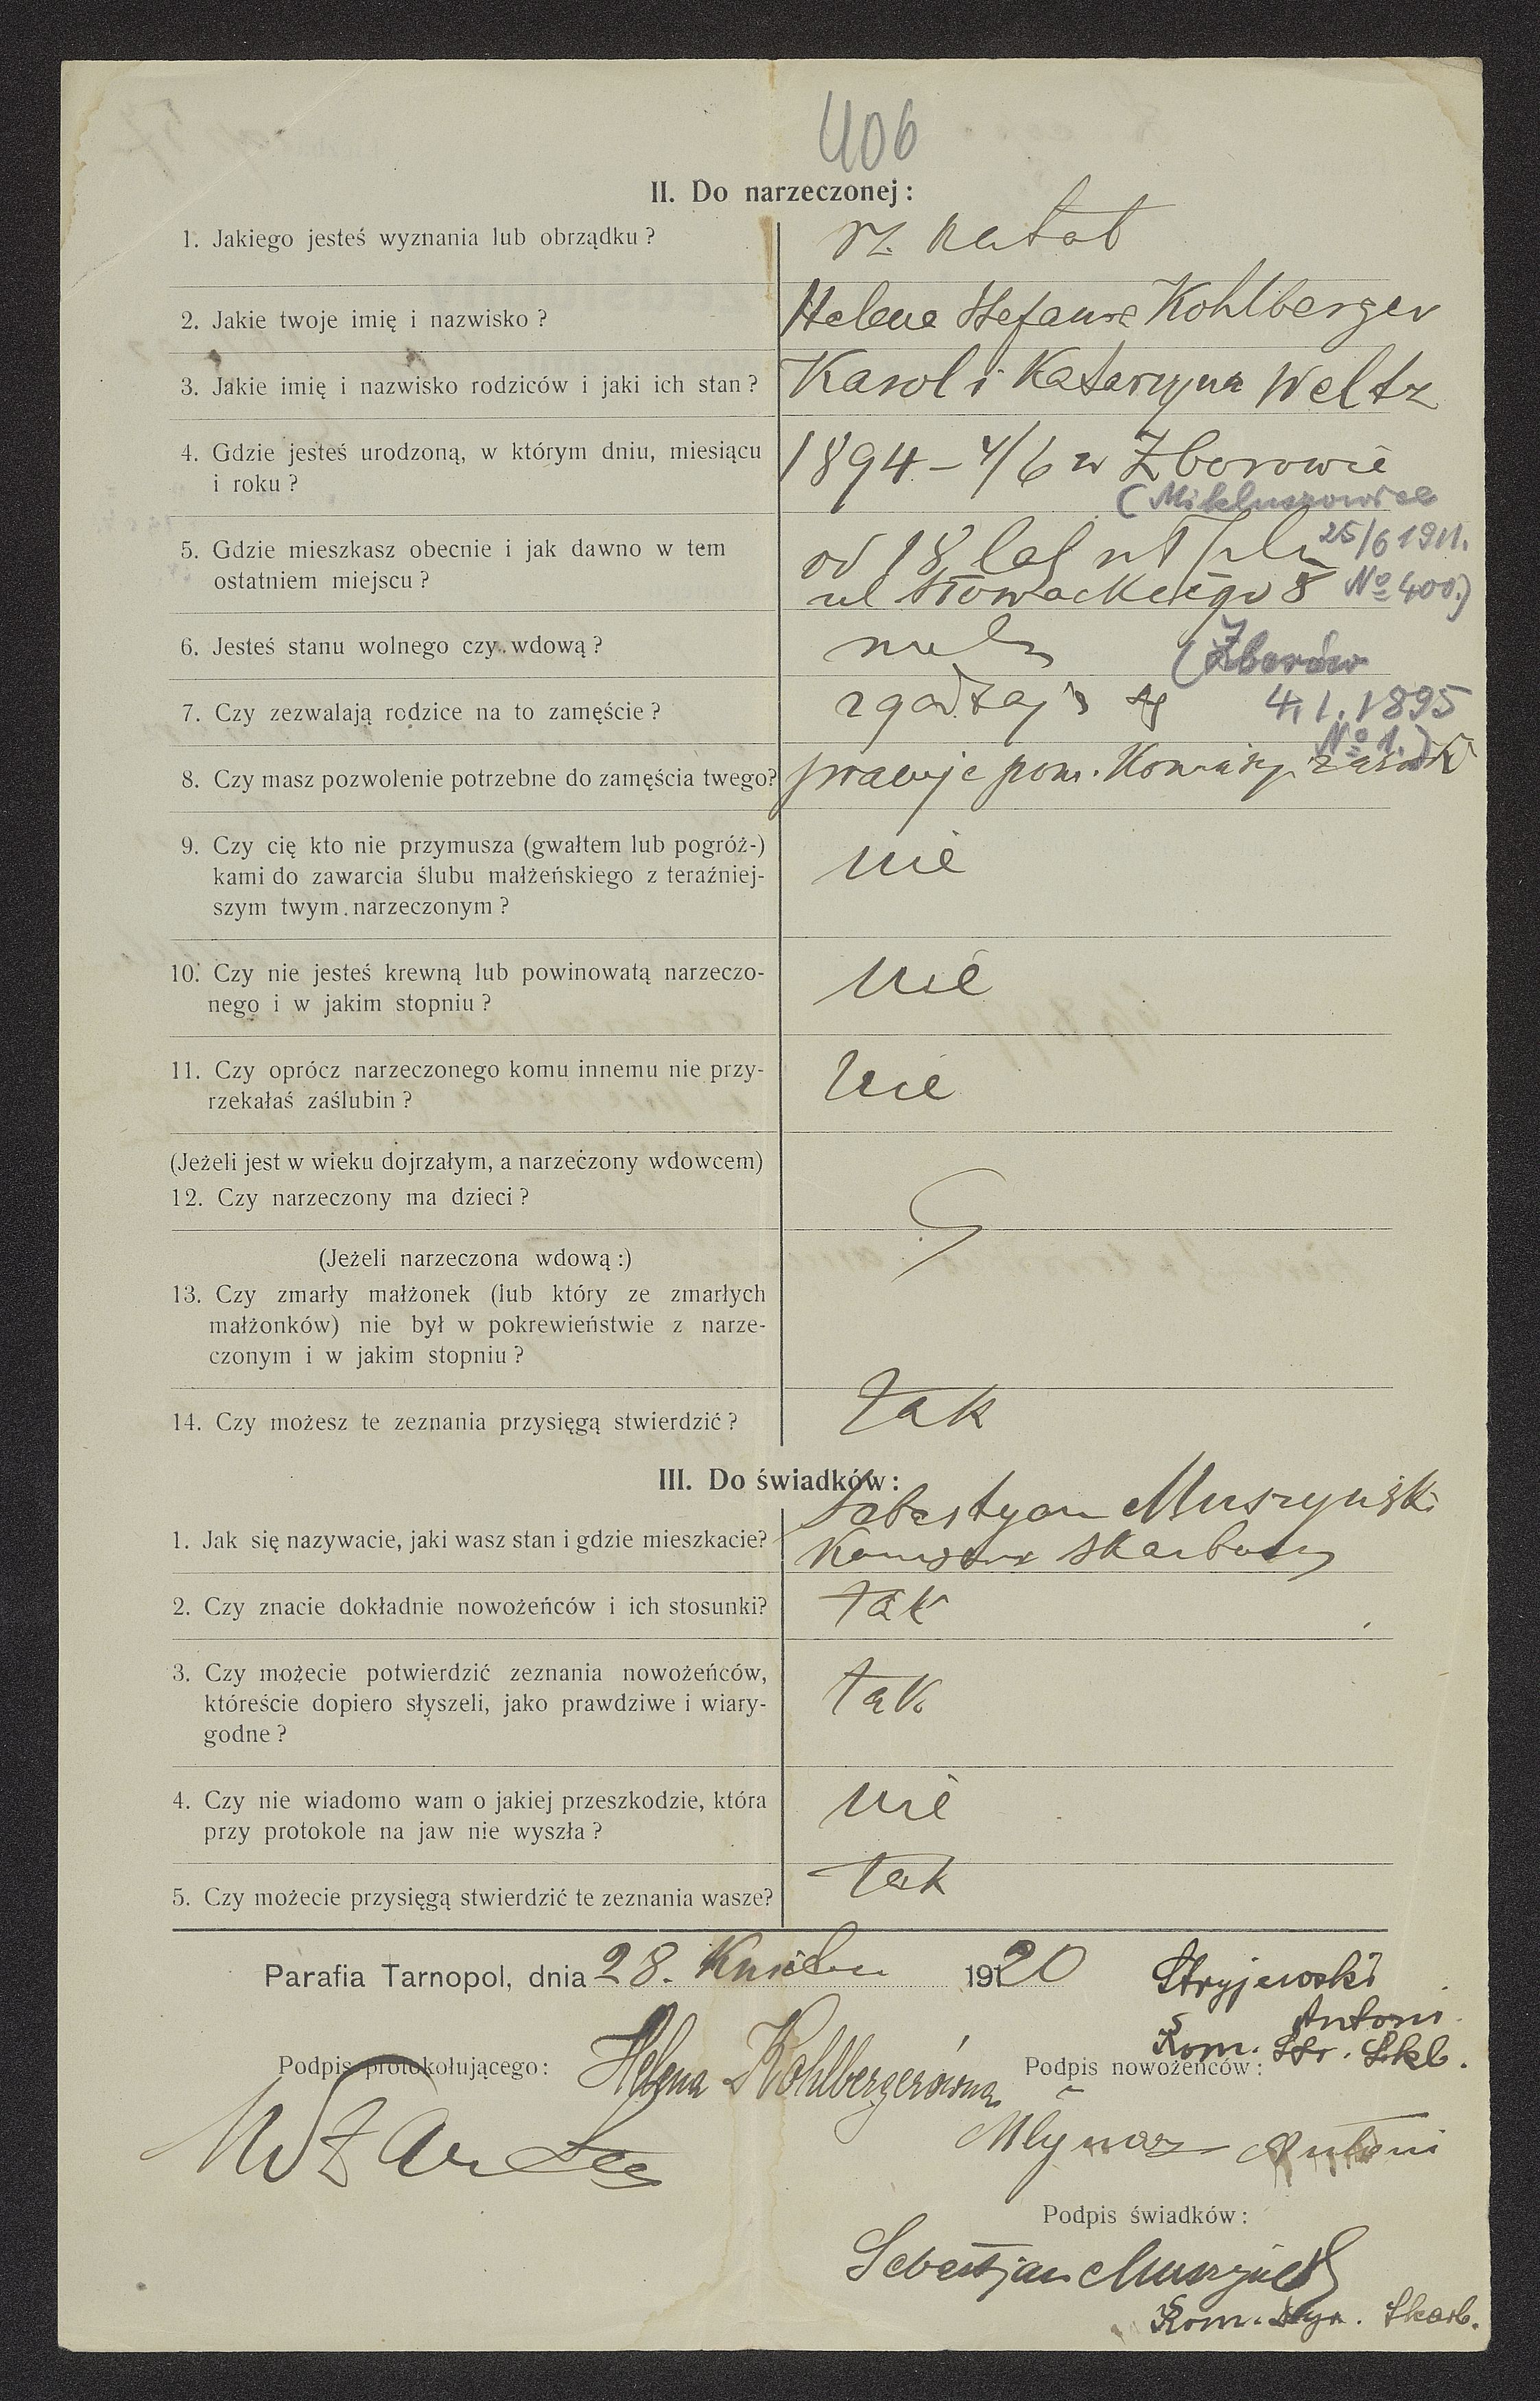 406
II. Do narzeczonej:
1. Jakiego jesteś wyznania lub obrządku?
rz. katol
2. Jakie twoje imię i nazwisko?
Helena Stefania Kohlberger
3. Jakie imię i nazwisko rodziców i jaki ich stan?
Karol i Katarzyna Weltz
4. Gdzie jesteś urodzoną, w którym dniu, miesiącu
i roku?
1894 – 4/6 w Zborowie
(Mikluszowice
25/6 1911.
№ 400.)
5. Gdzie mieszkasz obecnie i jak dawno w tem
ostatniem miejscu?
od 18 lat
ul Słowackiego 8
6. Jesteś stanu wolnego czy wdową?
(Zborów
4.1.1895
№ 1.)
7. Czy zezwalają rodzice na to zamęście?
zgadzają się
8. Czy masz pozwolenie potrzebne do zamęścia twego?
pracuje pom.
9. Czy cię kto nie przymusza (gwałtem lub pogróż-)
kami do zawarcia ślubu małżeńskiego z teraźniej-
szym twym narzeczonym?
nie
10. Czy nie jesteś krewną lub powinowatą narzeczo-
nego i w jakim stopniu?
nie
11. Czy oprócz narzeczonego komu innemu nie przy-
rzekałaś zaślubin?
nie
(Jeżeli jest w wieku dojrzałym, a narzeczony wdowcem)
12. Czy narzeczony ma dzieci?
(Jeżeli narzeczona wdową:)
13. Czy zmarły małżonek (lub który ze zmarłych
małżonków) nie był w pokrewieństwie z narze-
czonym i w jakim stopniu?
14. Czy możesz te zeznania przysięgą stwierdzić?
tak
III. Do świadków:
1. Jak się nazywacie, jaki wasz stan i gdzie mieszkacie?
Sebastyan Muszyński
Komisarz skarbowy
2. Czy znacie dokładnie nowożeńców i ich stosunki?
tak
3. Czy możecie potwierdzić zeznania nowożeńców,
któreście dopiero słyszeli, jako prawdziwe i wiary-
godne?
tak
4. Czy nie wiadomo wam o jakiej przeszkodzie, która
przy protokole na jaw nie wyszła?
nie
5. Czy możecie przysięgą stwierdzić te zeznania wasze?
tak
Parafia Tarnopol, dnia 28. Kwietnia 1920
Stryjewski
Antoni
Kom. Str. Skb.
Podpis protokołującego:
Helena Kohlbergerówna
Podpis nowożeńców:
Młynarz Antoni
Podpis świadków:
Sebastjan Muszyński
Kom. Skarb.